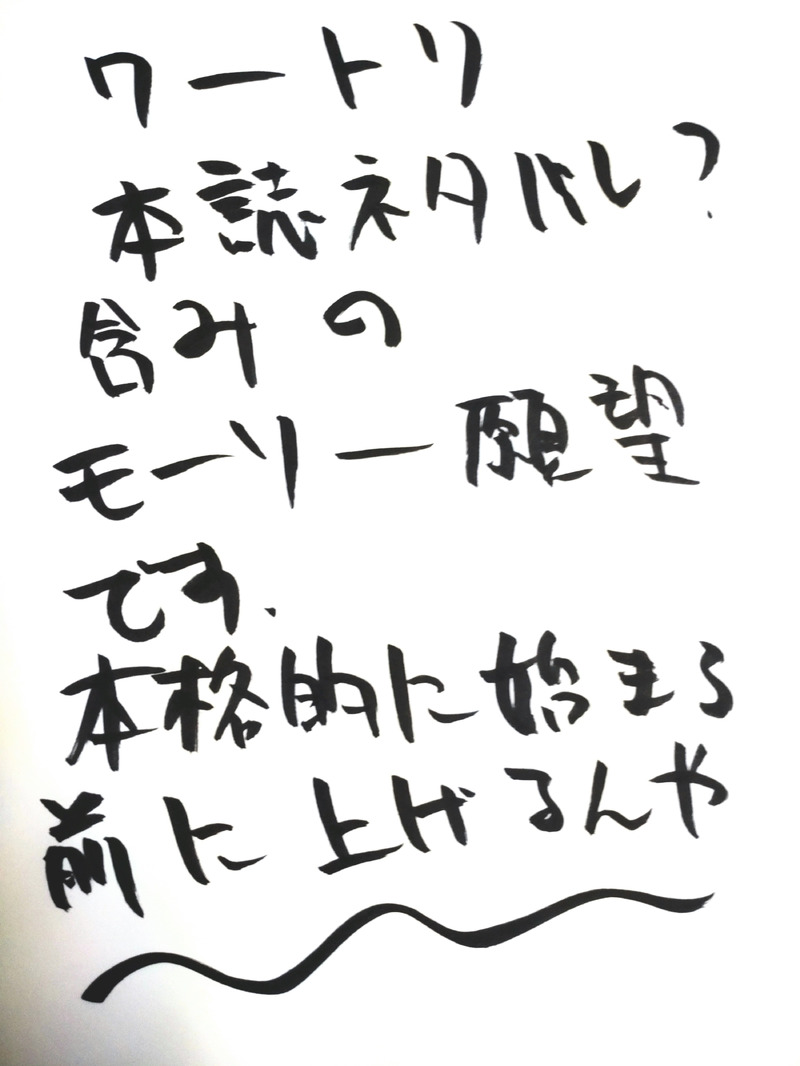 ワートリ
本誌ネタバレ?
含みの
モーソー願望
です.
本格的に始まる
前に上げるんや